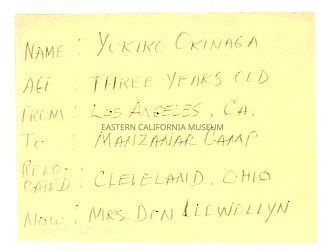 NAME: YUKIKO OKINAGA
AGE: THREE YEARS OLD
FROM: LOS ANGELES, CA.
EASTERN CALIFORNIA MUSEUM
TO: MANZANAR CAMP
RELO-
CATED: CLEVELAND, OHIO
NOW: MRS. DON LLEWELLYN